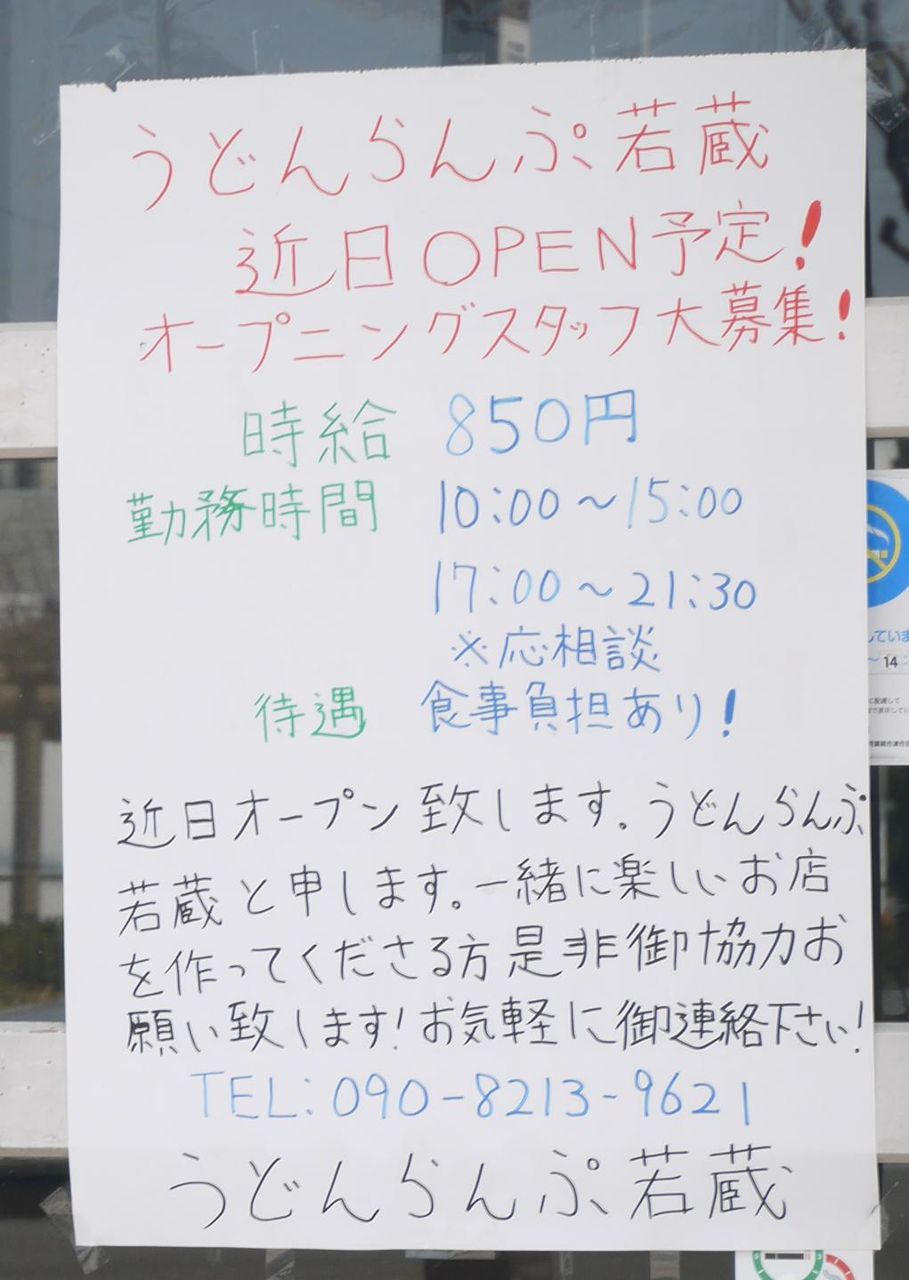 うどんらんぷ若蔵
近日OPEN予定!
オープニングスタッフ大募集!
時給 850円
勤務時間 10:00～15:00
17:00～21:30
※応相談
待遇 食事負担あり!
近日オープン致します。うどんらんぷ
若蔵と申します。一緒に楽しいお店
を作ってくださる方是非御協力お
願い致します!お気軽に御連絡下さい!
TEL:090-8213-9621
うどんらんぷ若蔵
していま
～14: